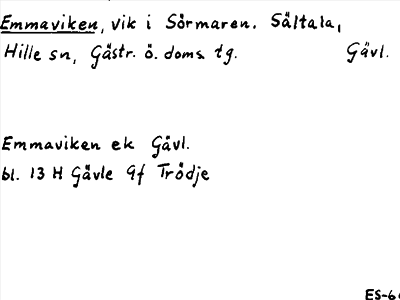 Emmaviken, vik i Sörmaren. Sältala,
Hille sn, Gästr. ö. doms. tg. Gävl.
Emmaviken ek Gävl.
bl. 13 H Gävle 9f Trödje
ES-6